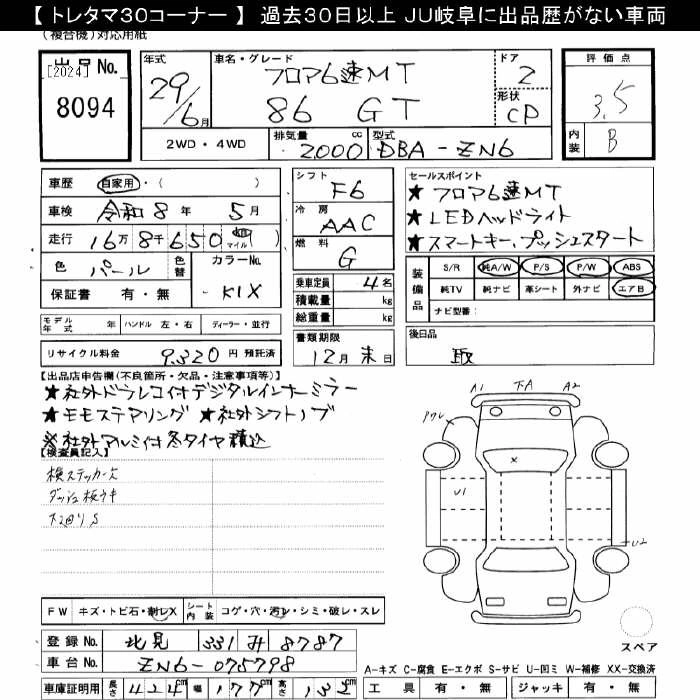 【 トレタマ30コーナー 】 過去30日以上 JU岐阜に出品歴がない車両
(複合機)対応用紙
出品 No.
[2024]
8094
年式 29/6月
車名・グレード フロア6速MT
86 GT
ドア 2
形状 CP
評価点 3.5
内装 B
2WD・4WD
排気量 2000 cc
型式 DBA-ZN6
車歴 自家用・( )
車検 令和8年 5月
走行 16万8千650 km マイル
色 パール 色替
カラーNo. K1X
保証書 有・無
シフト F6
冷房 AAC
燃料 G
乗車定員 4名
積載量 kg
総重量 kg
セールスポイント
★フロア6速MT
★LEDヘッドライト
★スマートキー、プッシュスタート
装備品
S/R 純A/W P/S P/W ABS
純TV 純ナビ 革シート 外ナビ エアB
ナビ型番:
モデル年式 年 ハンドル 左・右 ディーラー・並行
リサイクル料金 9,320 円 預託済
書類期限
12月末日
後日品
取
【出品店申告欄(不良箇所・欠品・注意事項等)】
★社外ドラレコ付デジタルインナーミラー
★モモステアリング ★社外シフトノブ
※社外アルミ付冬タイヤ積込
【検査員記入】
検ステッカー欠
ダッシュ板ウキ
下回りS
A1 下A A2
X
U1
U2
スペア
FW キズ・トビ石・劃レX
シート内装 コゲ・穴・汚レ・シミ・破レ・スレ
登録 No. 北見 331 み 8787
車台 No. ZN6-075798
車庫証明用 長さ 424cm 幅 177cm 高さ 132cm
A-キズ C-腐食 E-エクボ S-サビ U-凹ミ W-補修 XX-交換済
工具 有・無 ジャッキ 有・無